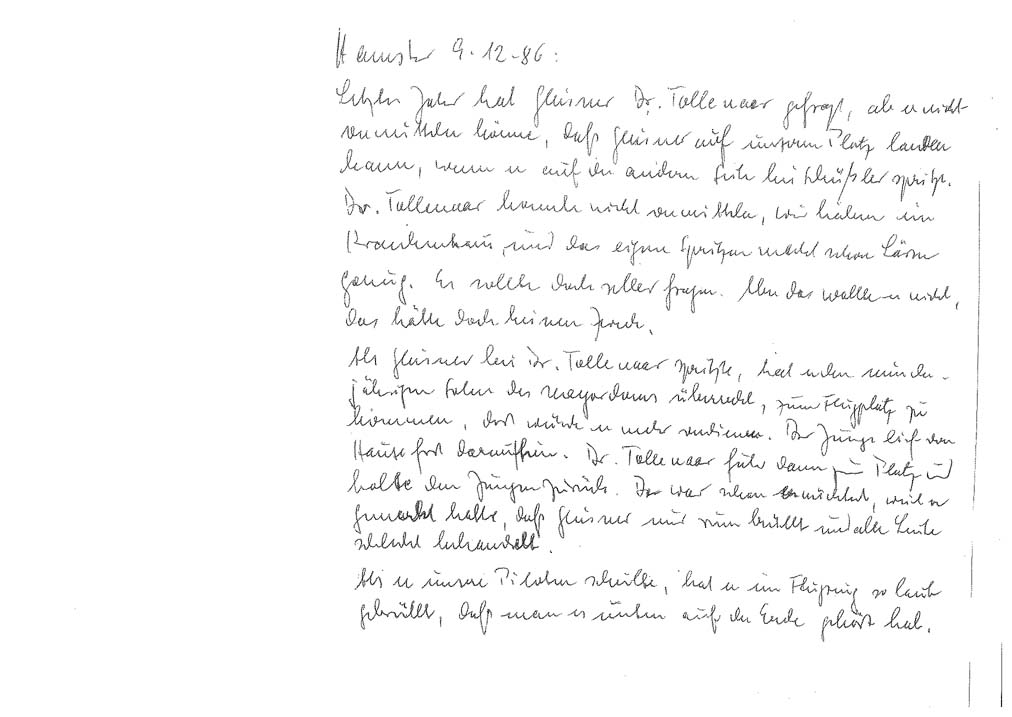 Hamster 9.12.86:
Letztes Jahr hat Gleisner Dr. Tollenaar gefragt, ob er nicht
vermitteln könne, daß Gleisner auf unserem Platz landen
kann, wenn er auf der anderen Seite bei Schüßler spritze.
Dr. Tollenaar konnte nicht vermitteln, wir haben ein
Krankenhaus und das eigene Spritzen macht schon Lärm
genug. Er sollte doch selber fragen. Aber das wollte er nicht,
das hätte doch keinen Zweck.
Als Gleisner bei Dr. Tollenaar spritzte, hat er den minder-
jährigen Sohn des mayordomo überredet, zum Flugplatz zu
kommen, dort würde er mehr verdienen. Der Junge lief von
Hause fort daraufhin. Dr. Tollenaar fuhr dann zum Platz und
holte den Jungen zurück. Der war schon ernüchtert, weil er
gemerkt hatte, daß Gleisner nur rum brüllt und alle Leute
schlecht behandelt.
Als er unsere Piloten schulte, hat er im Flugzeug so laut
gebrüllt, daß man es unten auf der Erde gehört hat.